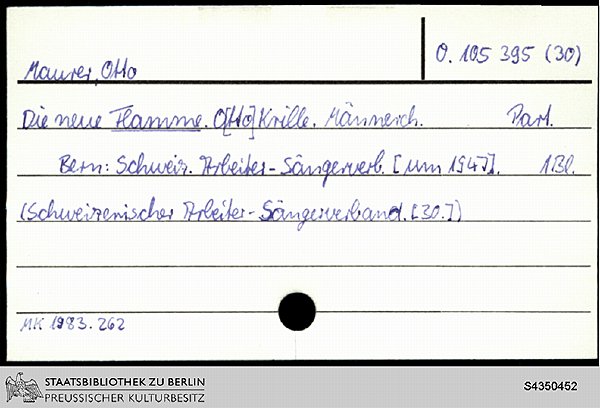 O. 105 395 (30)
Maurer, Otto
Die neue Flamme. O[tto] Krille. Männerch. Part.
Bern: Schweiz. Arbeiter-Sängerverb. [um 194?]. 1 Bl.
(Schweizerischer Arbeiter-Sängerverband. [30.])
MK 1983.262
STAATSBIBLIOTHEK ZU BERLIN
PREUSSISCHER KULTURBESITZ
S4350452